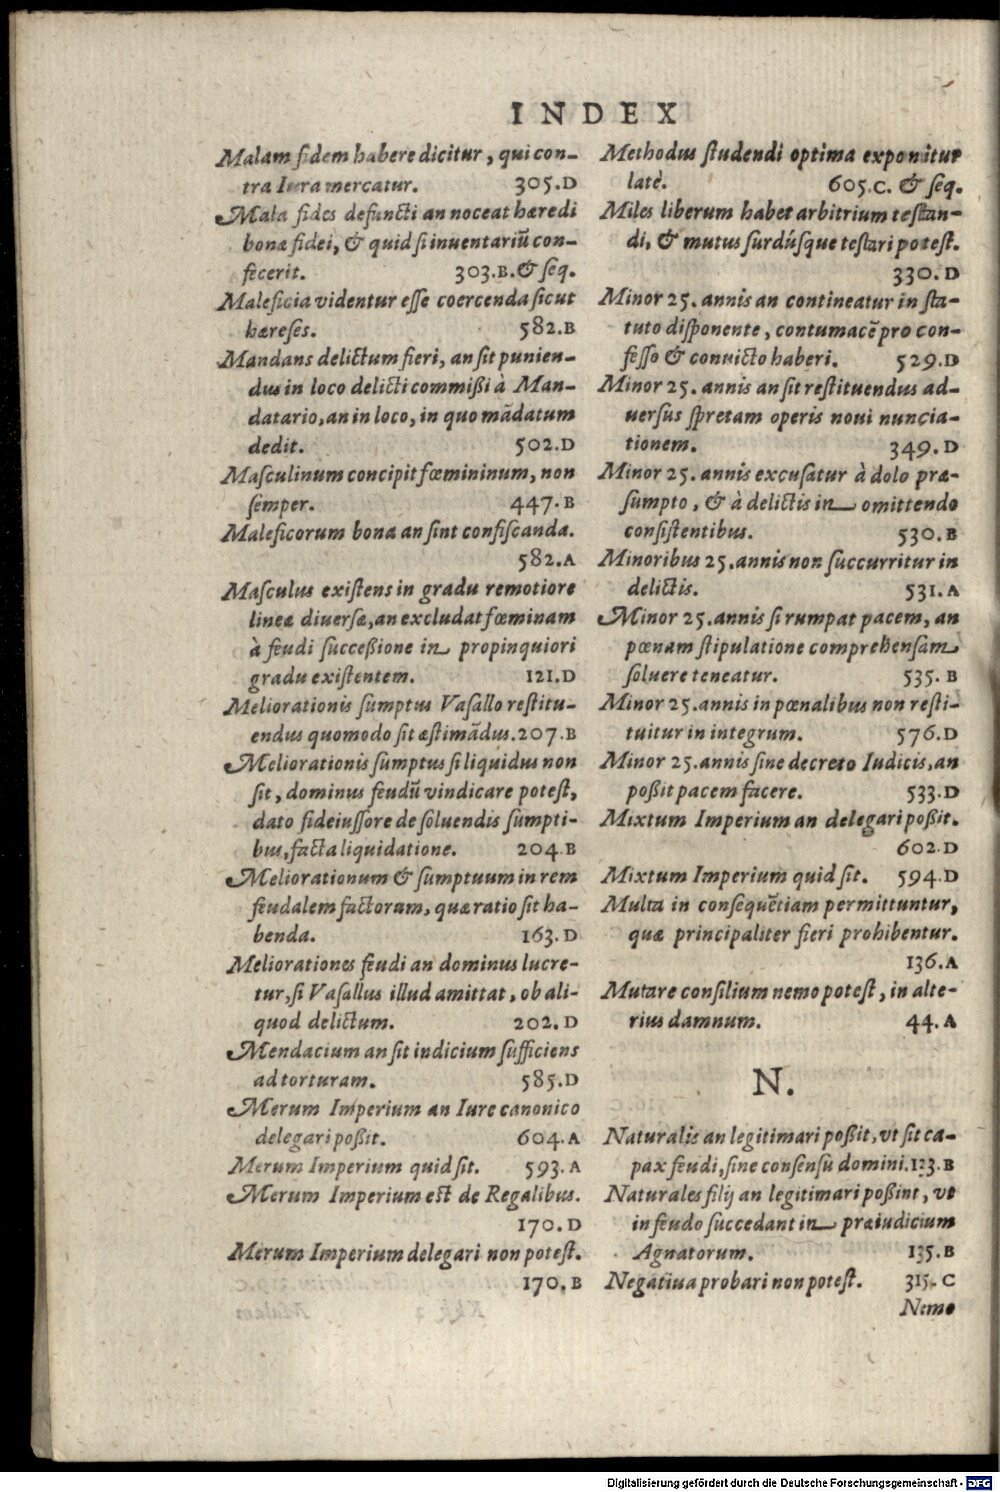 INDEX
Malam fidem habere dicitur, qui con-
tra Iura mercatur. 305.D
Mala fides defuncti an noceat hæredi
bonæ fidei, & quid si inuentariũ con-
fecerit. 303.B. & seq.
Maleficia videntur esse coercenda sicut
hæreses. 582.B
Mandans delictum fieri, an sit punien-
dus in loco delicti commißi à Man-
datario, an in loco, in quo mãdatum
dedit. 502.D
Masculinum concipit fœmininum, non
semper. 447.B
Maleficorum bona an sint confiscanda.
582.A
Masculus existens in gradu remotiore
lineæ diuersæ, an excludat fœminam
à feudi succeßione in propinquiori
gradu existentem. 121.D
Meliorationis sumptus Vasallo restitu-
endus quomodo sit æstimãdus. 207.B
Meliorationis sumptus si liquidus non
sit, dominus feudũ vindicare potest,
dato fideiussore de soluendis sumpti-
bus, facta liquidatione. 204.B
Meliorationum & sumptuum in rem
feudalem factorum, quæ ratio sit ha-
benda. 163.D
Meliorationes feudi an dominus lucre-
tur, si Vasallus illud amittat, ob ali-
quod delictum. 202.D
Mendacium an sit indicium sufficiens
ad torturam. 585.D
Merum Imperium an Iure canonico
delegari poßit. 604.A
Merum Imperium quid sit. 593.A
Merum Imperium est de Regalibus.
170.D
Merum Imperium delegari non potest.
170.B
Methodus studendi optima exponitur
latè. 605.C. & seq.
Miles liberum habet arbitrium testan-
di, & mutus surdúsque testari potest.
330.D
Minor 25. annis an contineatur in sta-
tuto disponente, contumacẽ pro con-
fesso & conuicto haberi. 529.D
Minor 25. annis an sit restituendus ad-
uersus spretam operis noui nuncia-
tionem. 349.D
Minor 25. annis excusatur à dolo præ-
sumpto, & à delictis in omittendo
consistentibus. 530.B
Minoribus 25. annis non succurritur in
delictis. 531.A
Minor 25. annis si rumpat pacem, an
pœnam stipulatione comprehensam
soluere teneatur. 535.B
Minor 25. annis in pœnalibus non resti-
tuitur in integrum. 576.D
Minor 25. annis sine decreto Iudicis, an
poßit pacem facere. 533.D
Mixtum Imperium an delegari poßit.
602.D
Mixtum Imperium quid sit. 594.D
Multa in consequẽtiam permittuntur,
quæ principaliter fieri prohibentur.
136.A
Mutare consilium nemo potest, in alte-
rius damnum. 44.A
N.
Naturalis an legitimari poßit, vt sit ca-
pax feudi, sine consensu domini. 123.B
Naturales filij an legitimari poßint, vt
in feudo succedant in præiudicium
Agnatorum. 135.B
Negatiua probari non potest. 315.C
Nemo
Digitalisierung gefördert durch die Deutsche Forschungsgemeinschaft - DFG